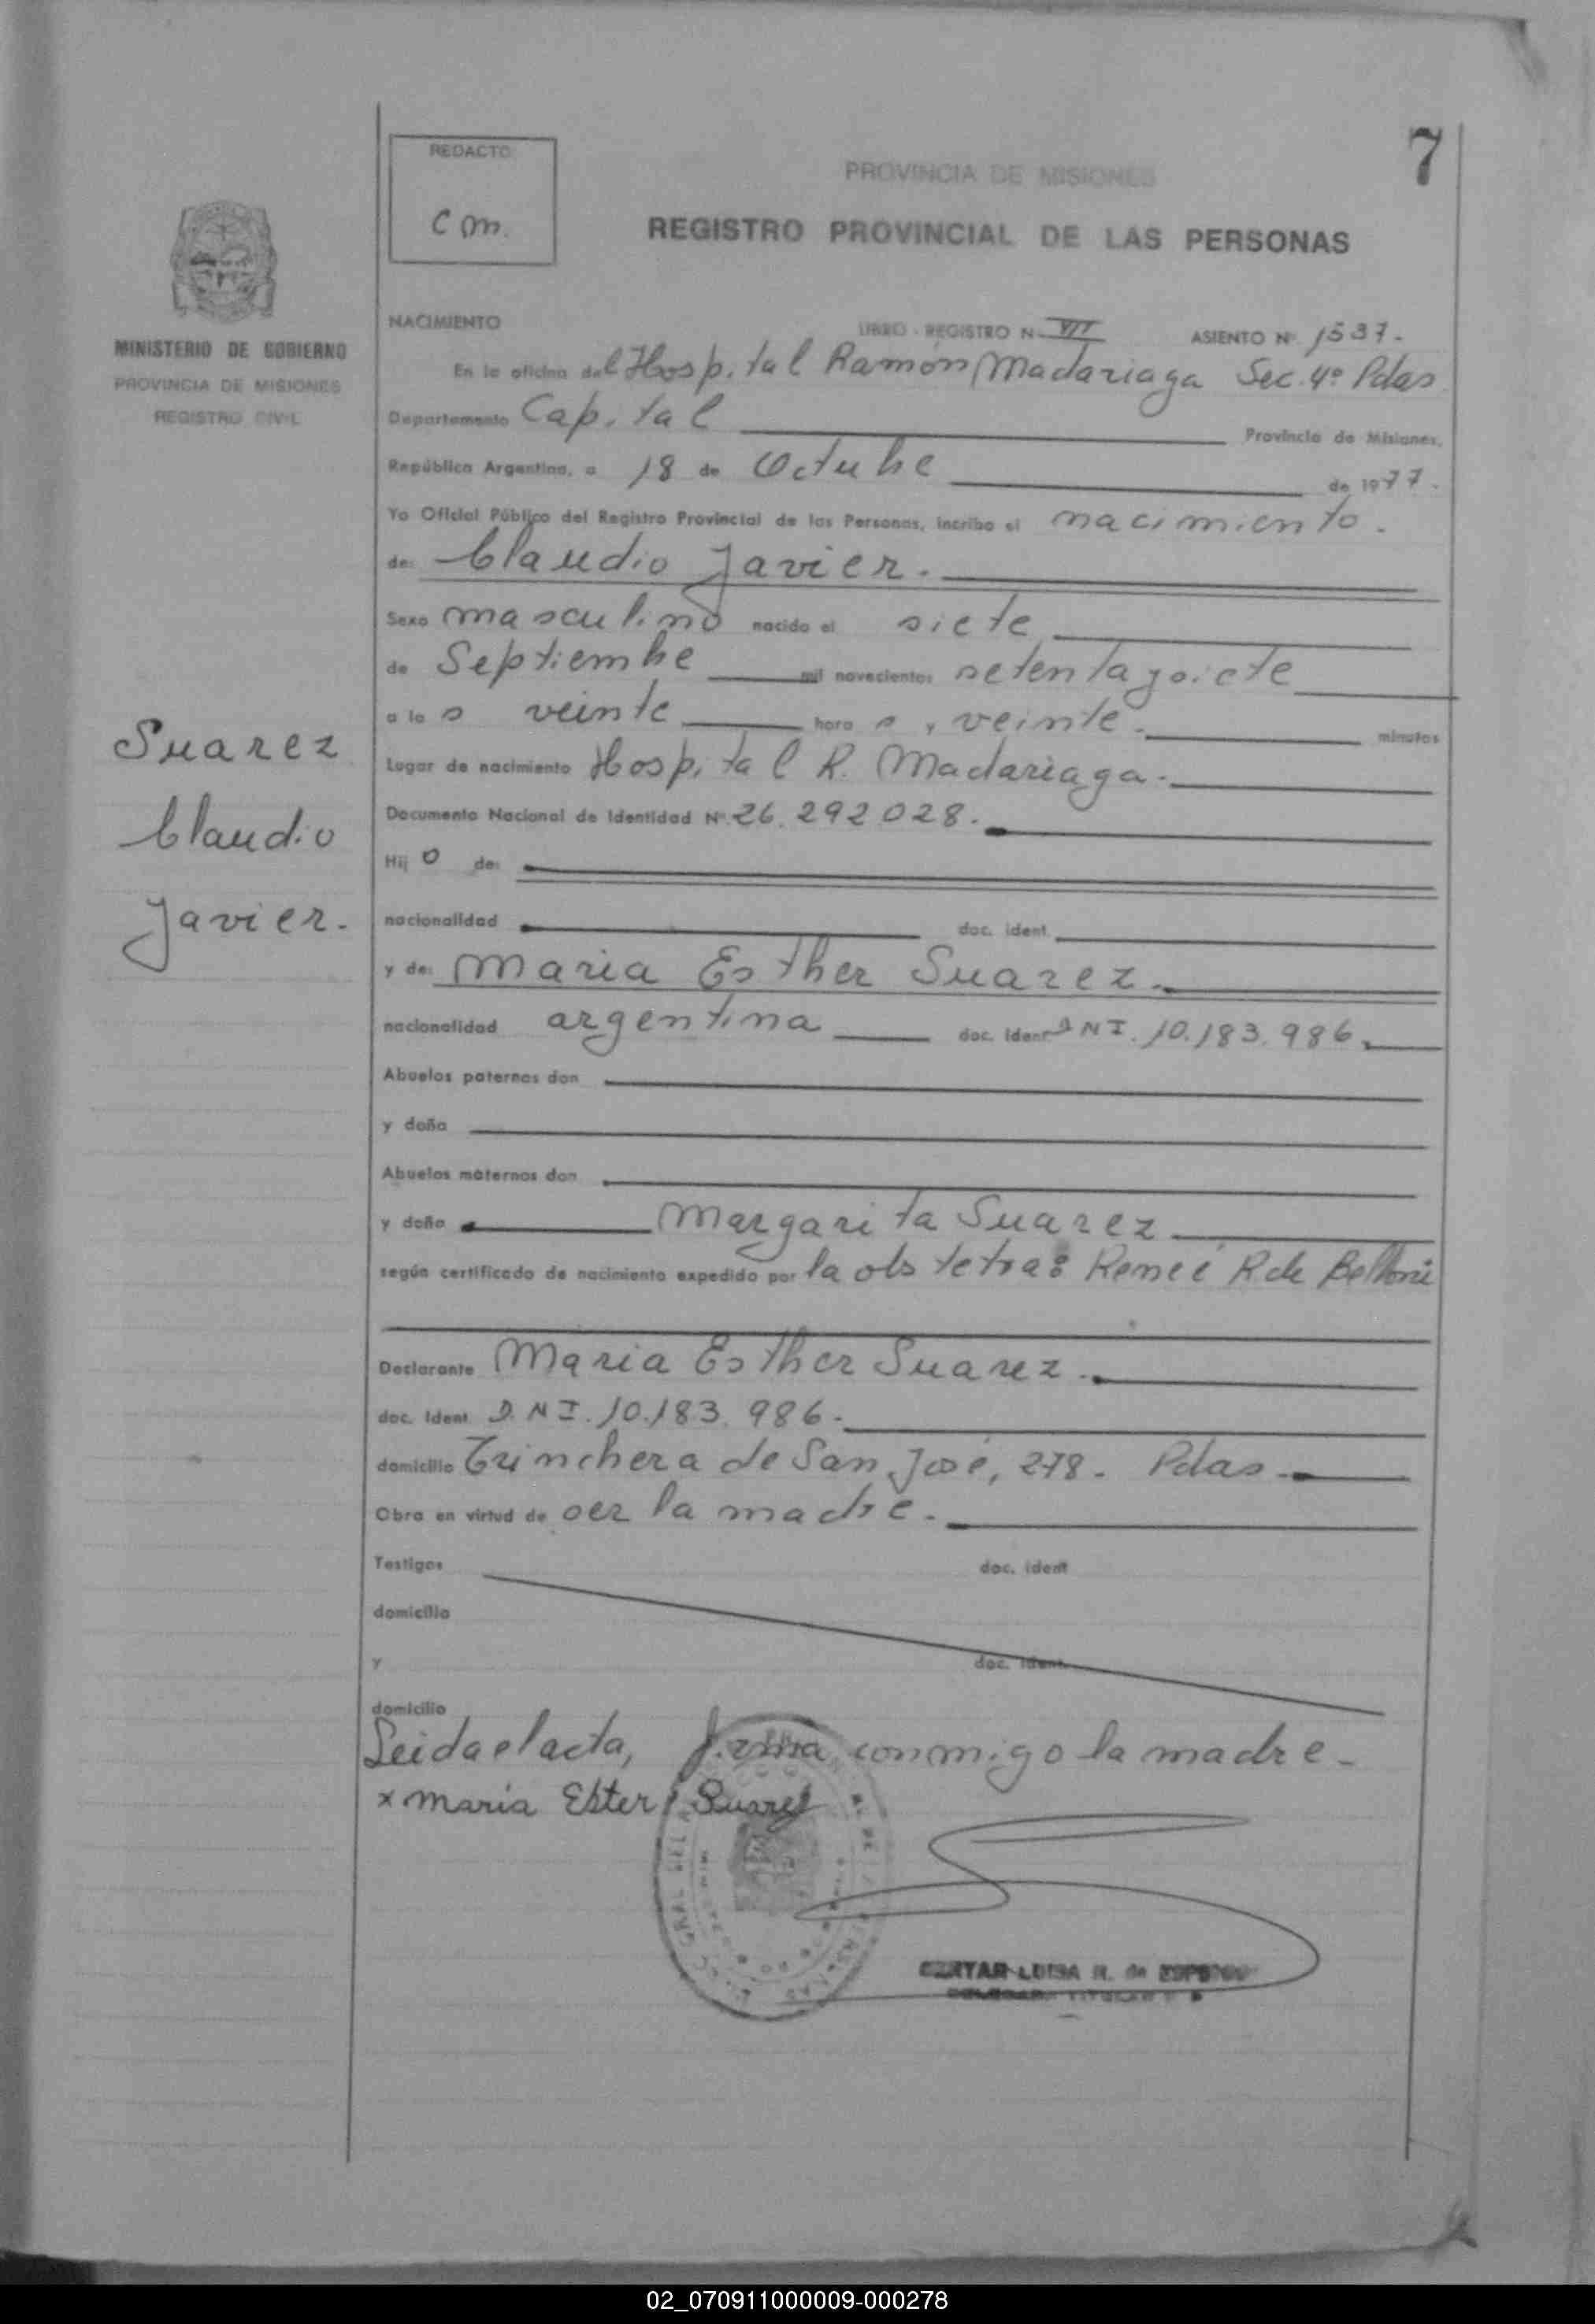 7
REDACTO
C m.
PROVINCIA DE MISIONES
REGISTRO PROVINCIAL DE LAS PERSONAS
MINISTERIO DE GOBIERNO
PROVINCIA DE MISIONES
REGISTRO CIVIL
NACIMIENTO LIBRO - REGISTRO N. VII ASIENTO Nº 1537.-
En la oficina del Hospital Ramón Madariaga Sec. 4º Pdas
Departamento Capital Provincia de Misiones,
República Argentina, a 18 de Octubre de 1977.
Yo Oficial Público del Registro Provincial de las Personas, incribo el nacimiento.
de: Claudio Javier.
Sexo masculino nacido el siete
de Septiembre mil novecientos setentaysiete
a las veinte horas, veinte. minutos
Lugar de nacimiento Hospital R. Madariaga.
Documento Nacional de Identidad Nº 26.292028.
Hijo de:
nacionalidad doc. ident.
y de: Maria Esther Suarez.
nacionalidad argentina doc. ident DNI. 10.183.986.
Abuelos paternos don
y doña
Abuelos maternos don
y doña Margarita Suarez
según certificado de nacimiento expedido por la obstetra: Reneé R de
Declarante Maria Esther Suarez.
doc. Ident D.N I. 10.183.986.
domicilio Trinchera de San José, 278. Pdas.
Obra en virtud de ser la madre.
Testigos doc. ident
domicilio
y doc. ident.
domicilio
Leida el acta, firma conmigo la madre.
x maria Ester Suarez
Suarez
Claudio
Javier.
LUISA R. de
02_070911000009-000278